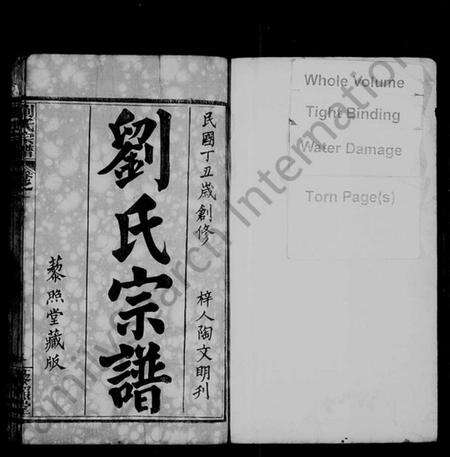 民國丁丑歲創修
梓人陶文明刊
劉氏宗譜
藜照堂藏版
劉氏宗譜
Whole Volume
Tight Binding
Water Damage
Torn Page(s)